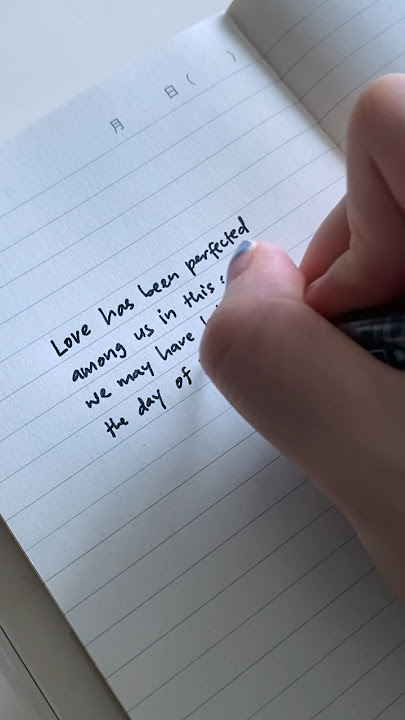 月 日 ( )
Love has been perfected
among us in this :
we may have
the day of